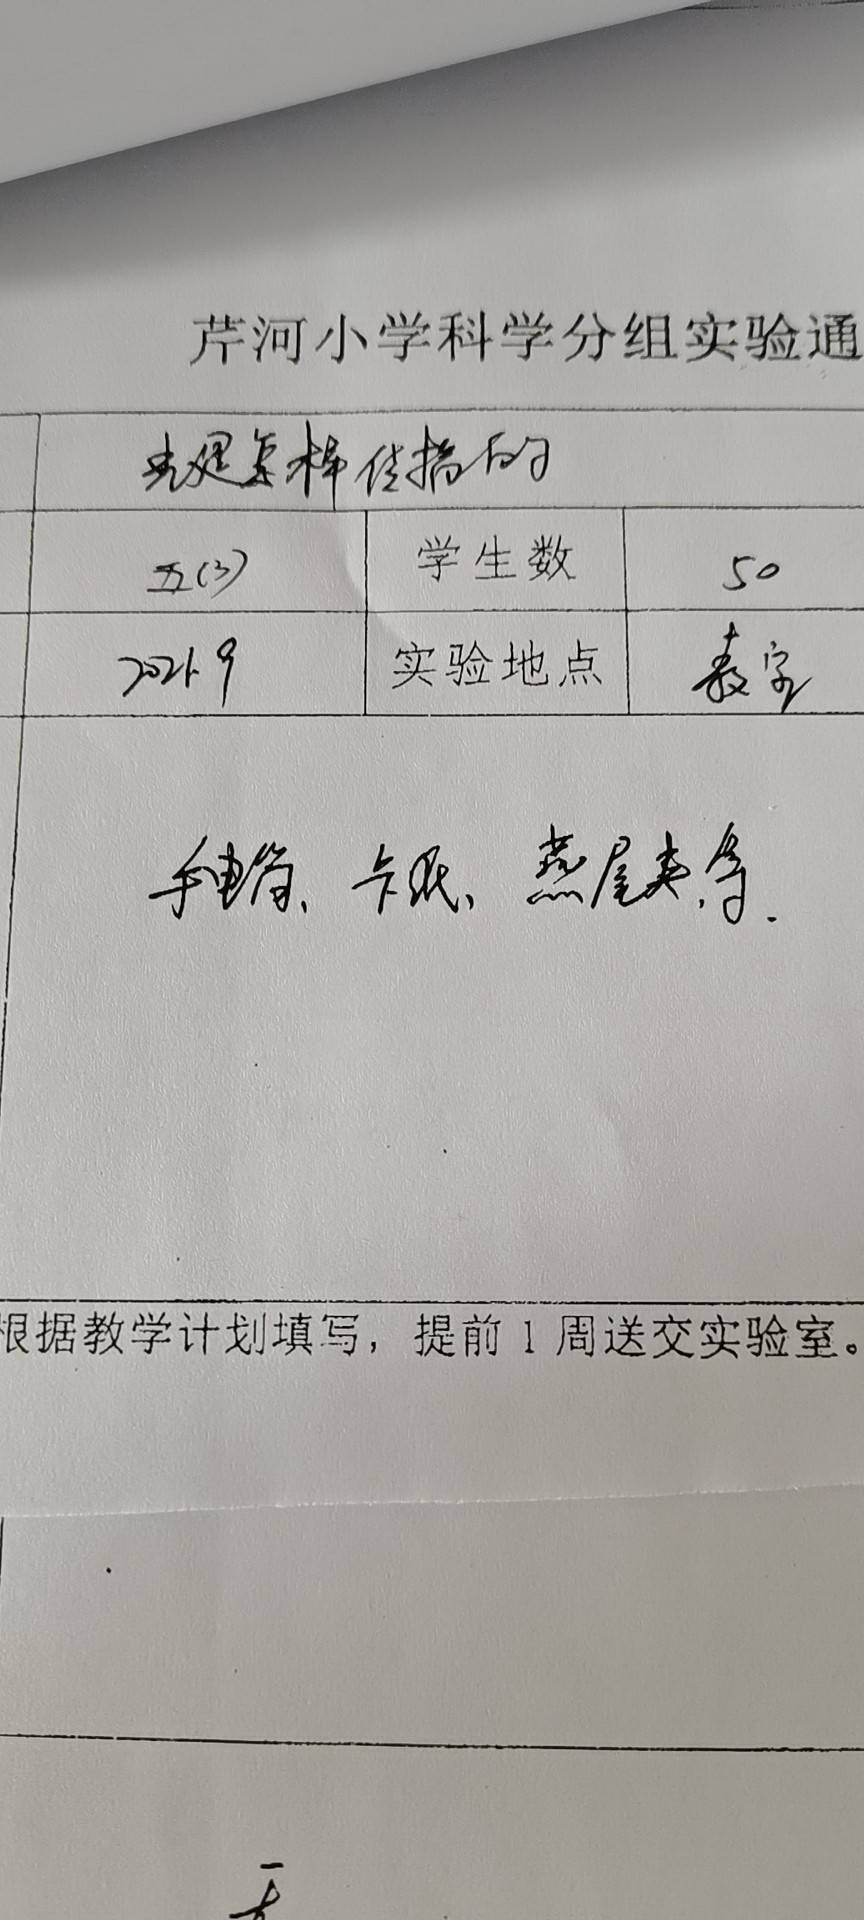 芹河小学科学分组实验通
光是怎样传播的
五(3) 学生数 50
2021.9 实验地点 教室
手电筒、卡纸、燕尾夹,等.
根据教学计划填写，提前1周送交实验室。